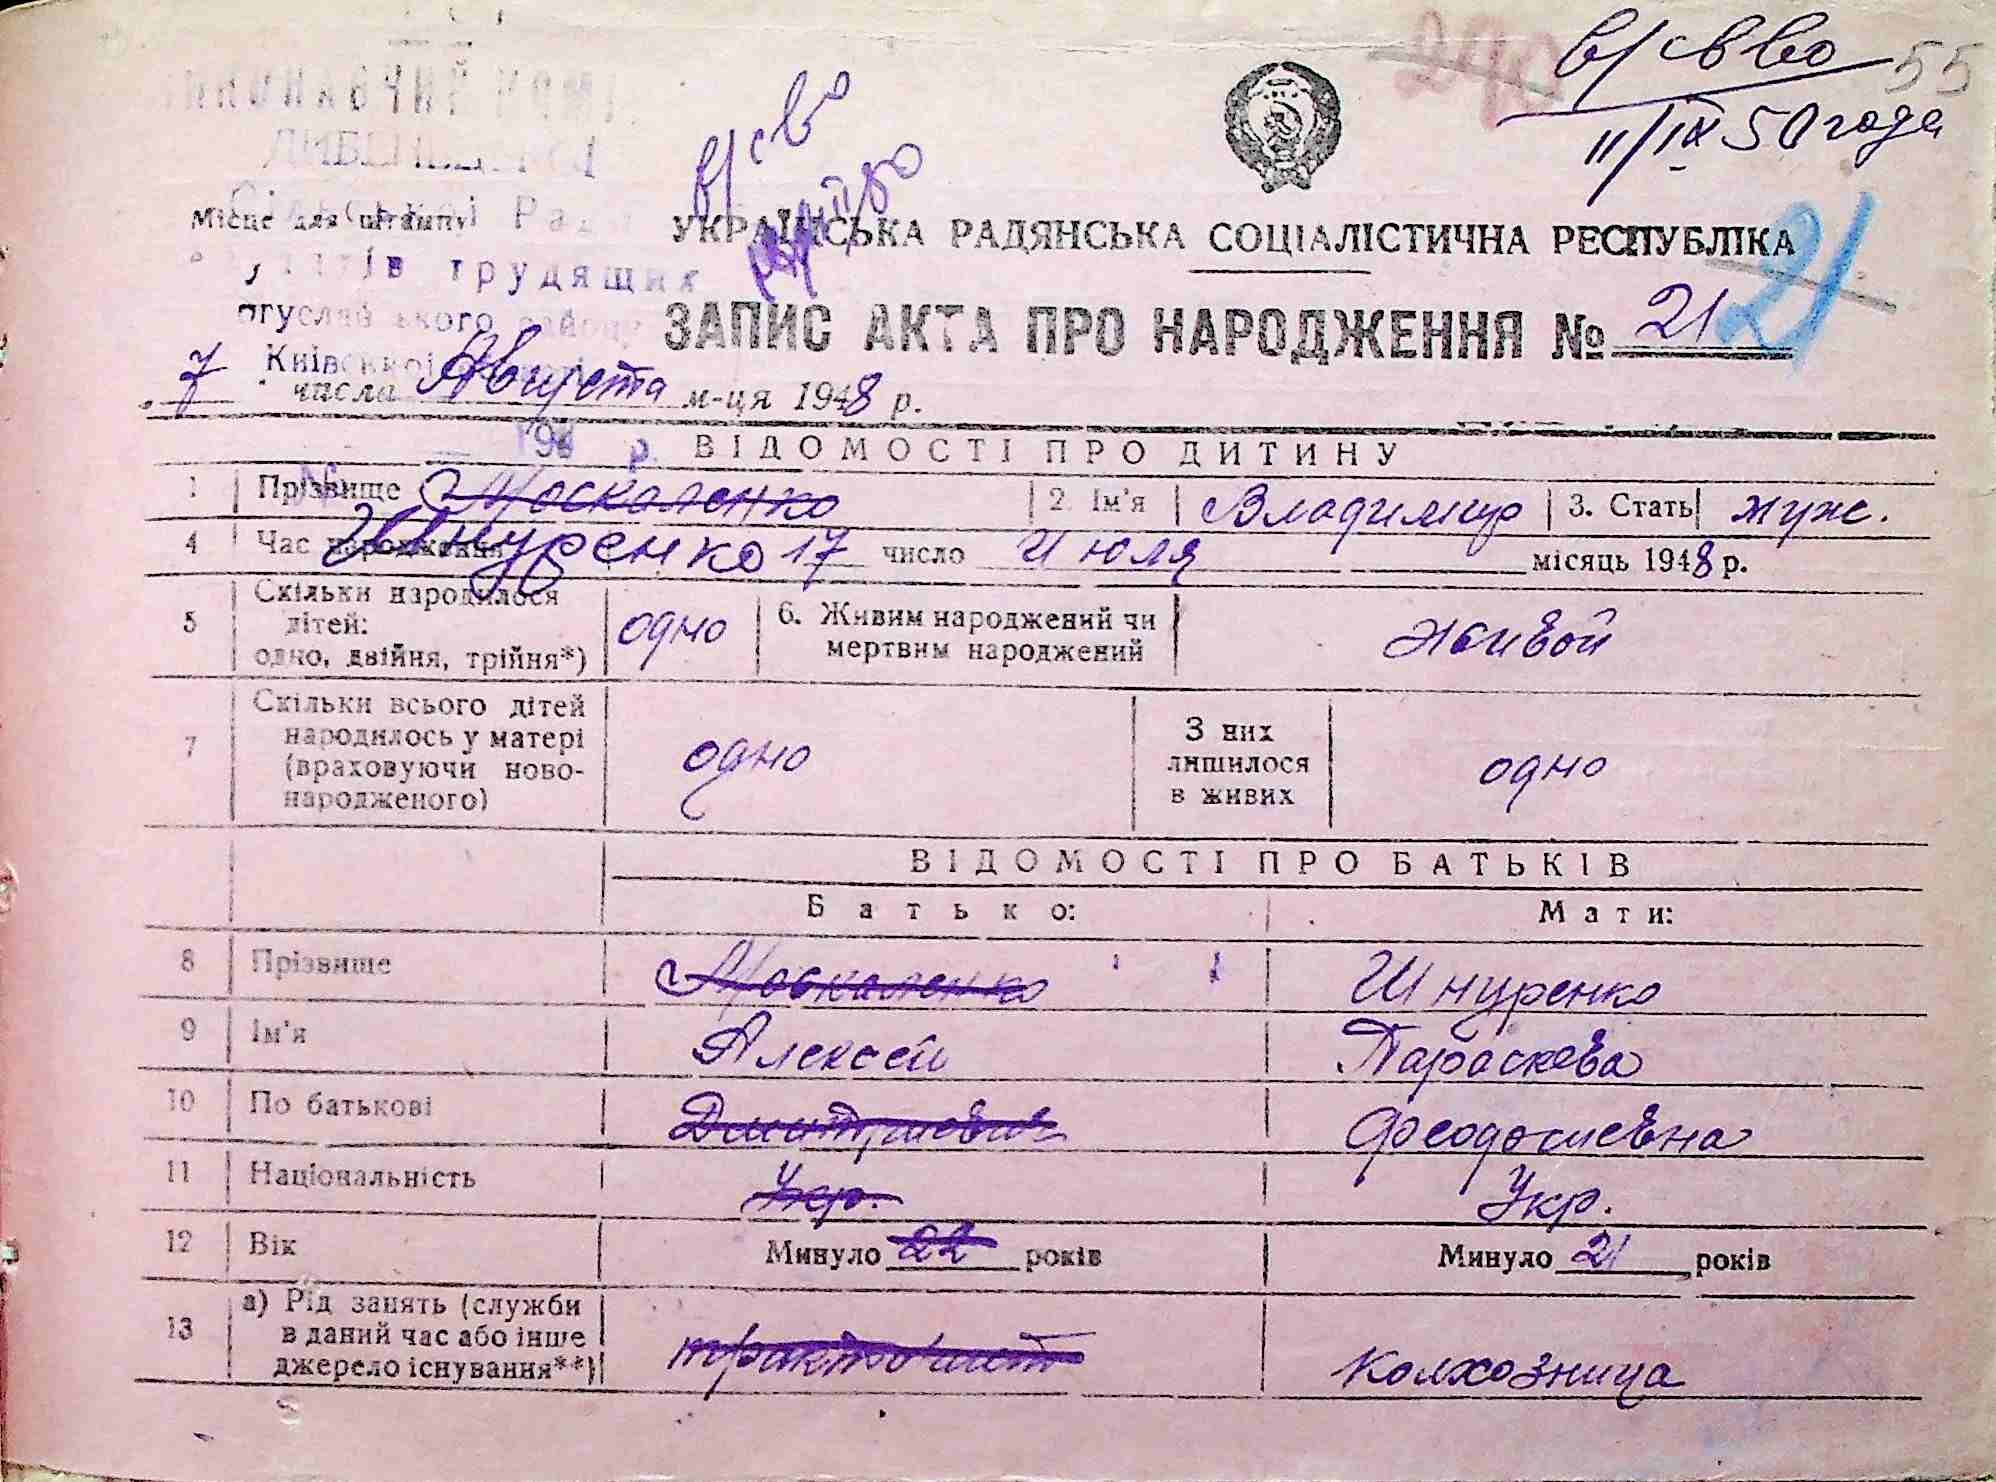 240
в/с в-во 55
11/IX 50 года
в/с в-во
Сільської Ради
Місце для штампу
трудящих
УКРАЇНСЬКА РАДЯНСЬКА СОЦІАЛІСТИЧНА РЕСПУБЛІКА
21
ЗАПИС АКТА ПРО НАРОДЖЕННЯ № 21
району
Київської
7 числа Августа м-ця 1948 р.
194 р.
ВІДОМОСТІ ПРО ДИТИНУ
1 Прізвище Москаленко 2. Ім'я Владимир 3. Стать муж.
Шнуренко
4 Час народження 17 число Июля місяць 1948 р.
5 Скільки народилося дітей: одно, двійня, трійня*) одно 6. Живим народжений чи мертвим народжений живой
7 Скільки всього дітей народилось у матері (враховуючи ново-народженого) одно З них лишилося в живих одно
ВІДОМОСТІ ПРО БАТЬКІВ
Батько: Мати:
8 Прізвище Москаленко Шнуренко
9 Ім'я Алексей Параскева
10 По батькові Дмитриевич Феодосиевна
11 Національність Укр. Укр.
12 Вік Минуло 22 років Минуло 21 років
13 а) Рід занять (служби в даний час або інше джерело існування**) тракторист колхозница